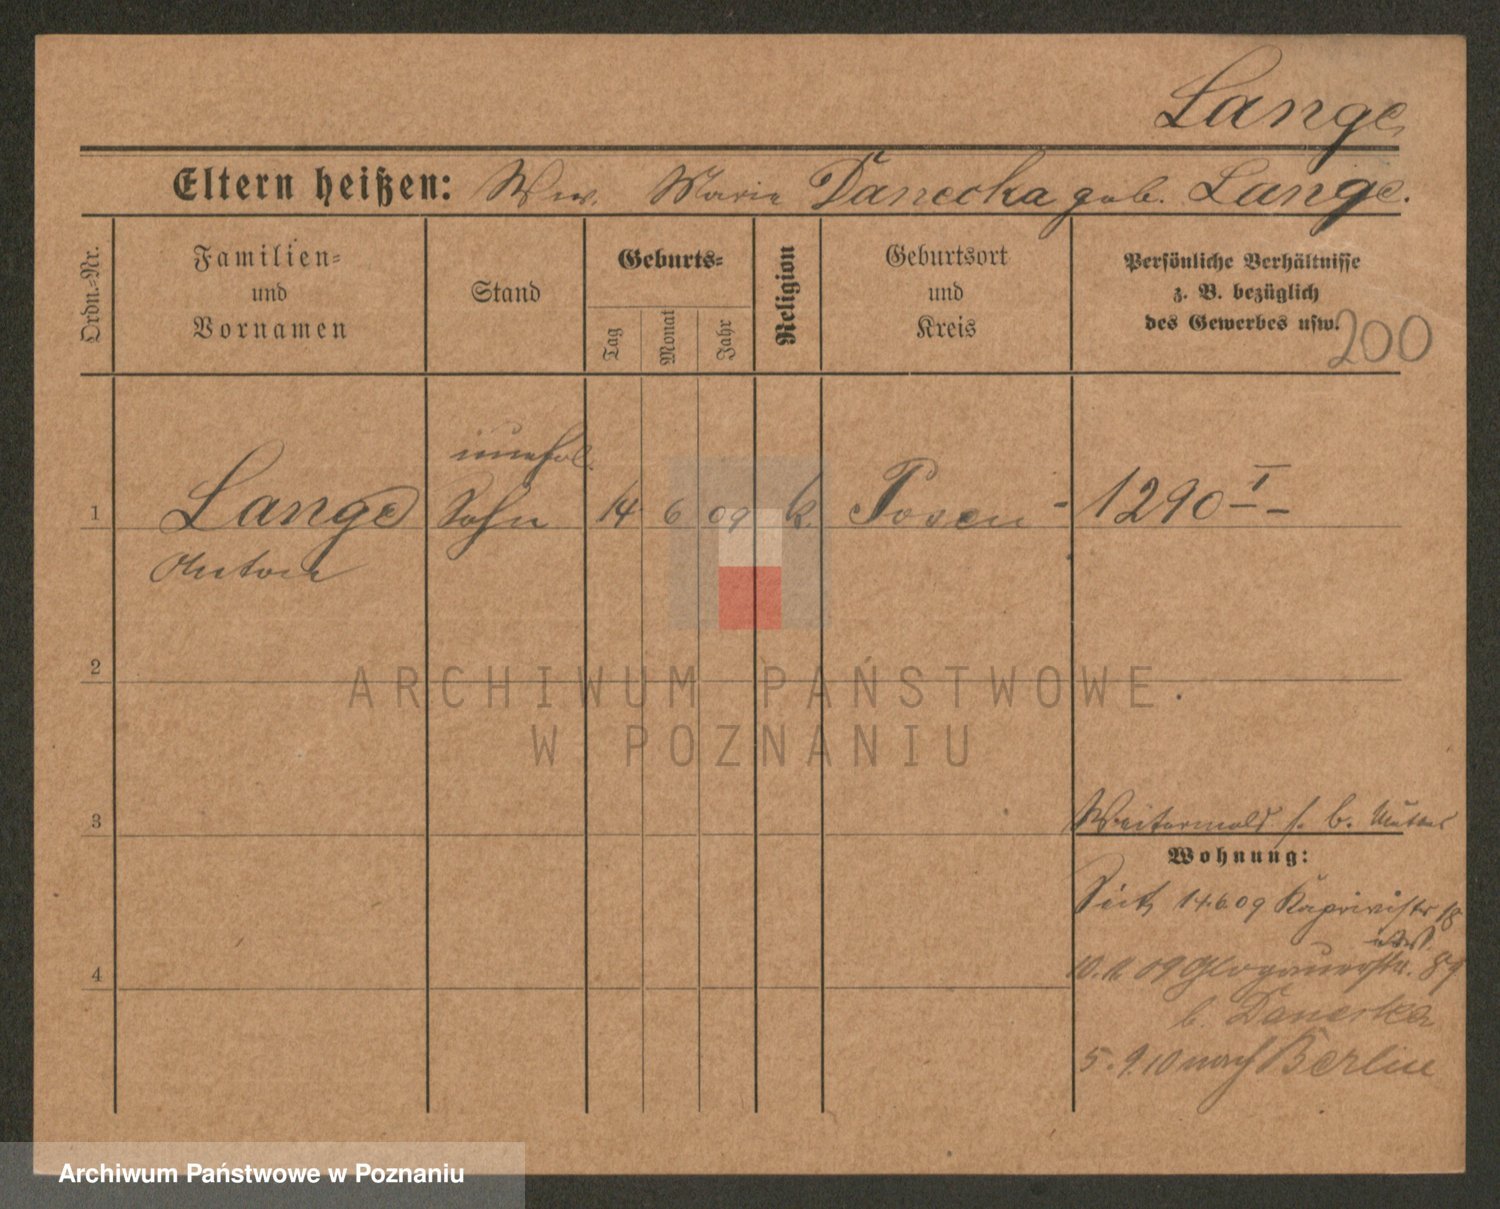 Lange
Eltern heißen: Ww. Marie Danecka geb. Lange.
Ordn.-Nr.
Familien-
und
Vornamen
Stand
Geburts-
Tag
Monat
Jahr
Religion
Geburtsort
und
Kreis
Persönliche Verhältnisse
z. B. bezüglich
des Gewerbes usw.
200
unehel.
1 Lange Sohn 14 6 09 k. Posen - 1290 I
Anton
2
3
4
s. b. Mutter
Wohnung:
Seit 14.6.09 Kaprivistr 18
10. 09 Glogauerstr. 89
b. Danecka
5.9.10 nach Berlin
ARCHIWUM PAŃSTWOWE
W POZNANIU
Archiwum Państwowe w Poznaniu